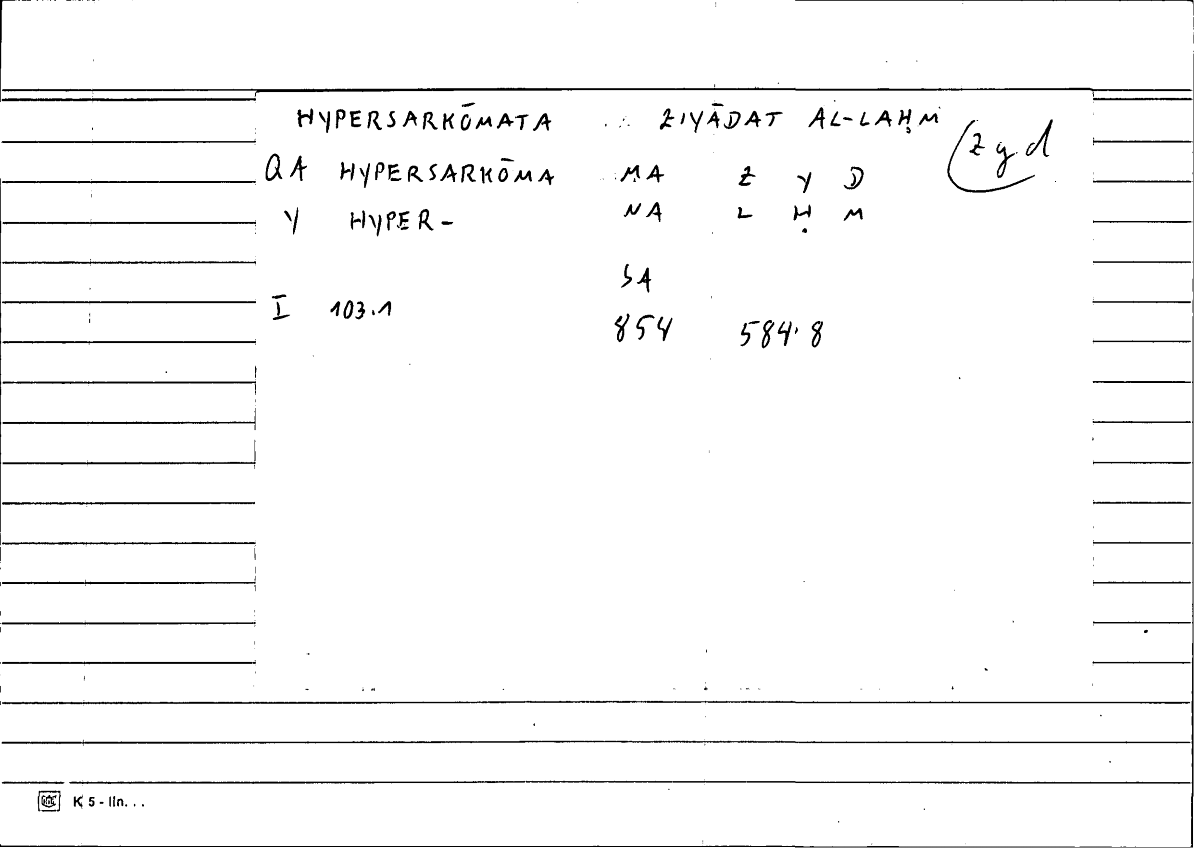 HYPERSARKŌMATA ZIYĀDAT AL-LAḤM zyd
QA HYPERSARKŌMA MA Z Y D
Y HYPER- NA L Ḥ M
SA
I 103.1
854 584.8
K 5 - lin. . .